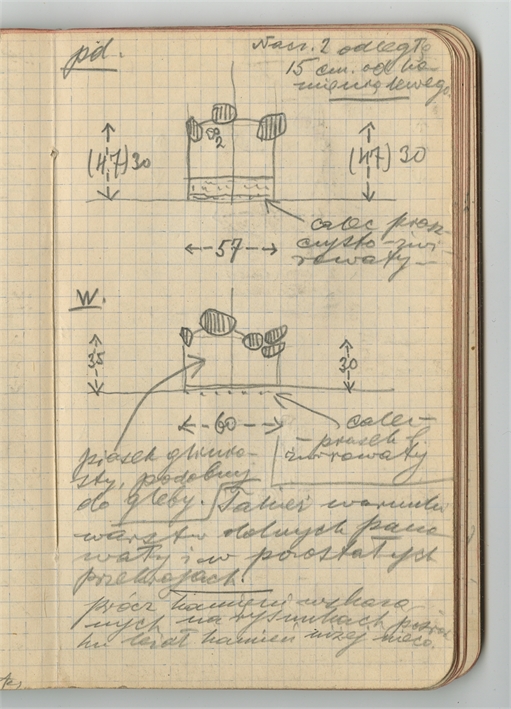 pd.
Nacz. 2 odległe
15 cm. od ka-
mienia lewego
2
(47) 30
(47) 30
calec piasz-
czysto-żwi-
rowaty
57
W.
35
30
60
calec-
- piasek b.
żwirowaty
piasek glinia-
sty, podobny
do gleby. Takie warunki
warstw dolnych pano
wały i w pozostałych
przekrojach.
Prócz kamieni wskaza
nych na rysunkach
leżał kamień niżej nieco.